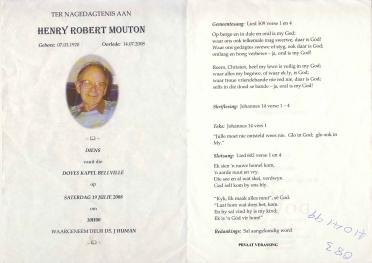 TER NAGEDAGTENIS AAN
HENRY ROBERT MOUTON
Gebore: 07.03.1920 Oorlede: 14.07.2008
DIENS
vanuit die
DOVES KAPEL BELLVILLE
op
SATERDAG 19 JULIE 2008
om
10H00
WAARGENEEM DEUR DS. J HUMAN
Gemeentesang: Lied 509 verse 1 en 4
Op berge en in dale en oral is my God;
waar ons ook telkemale mag swerwe, daar is God!
Waar ons gedagtes swewe of styg, ook daar is God;
omlaag en hoog verhewe – ja, oral is my God!
waar alles my begewe, of waar ek ly, is God;
waar troue vriendehande nie red nie, daar is God;
selfs in die dood se bande – ja, oral is my God!
Skriflesing: Johannes 14 verse 1 – 4
Teks: Johannes 14 vers 1
"Julle moet nie ontsteld wees nie. Glo in God; glo ook in
My."
Slotsang: Lied 602 verse 1 en 4
Ek sien 'n nuwe hemel kom,
'n aarde nuut en vry.
Die see en al wat skei, verdwyn.
God self kom by ons bly.
"Kyk, Ek maak alles nuut", sê God.
"Laat hom wat dors het, kom.
En hy sal vind hy is my kind;
Ek is 'n God vir hom!"
Bedankings: Sal aangekondig word
PRIVAAT VERASSING
083